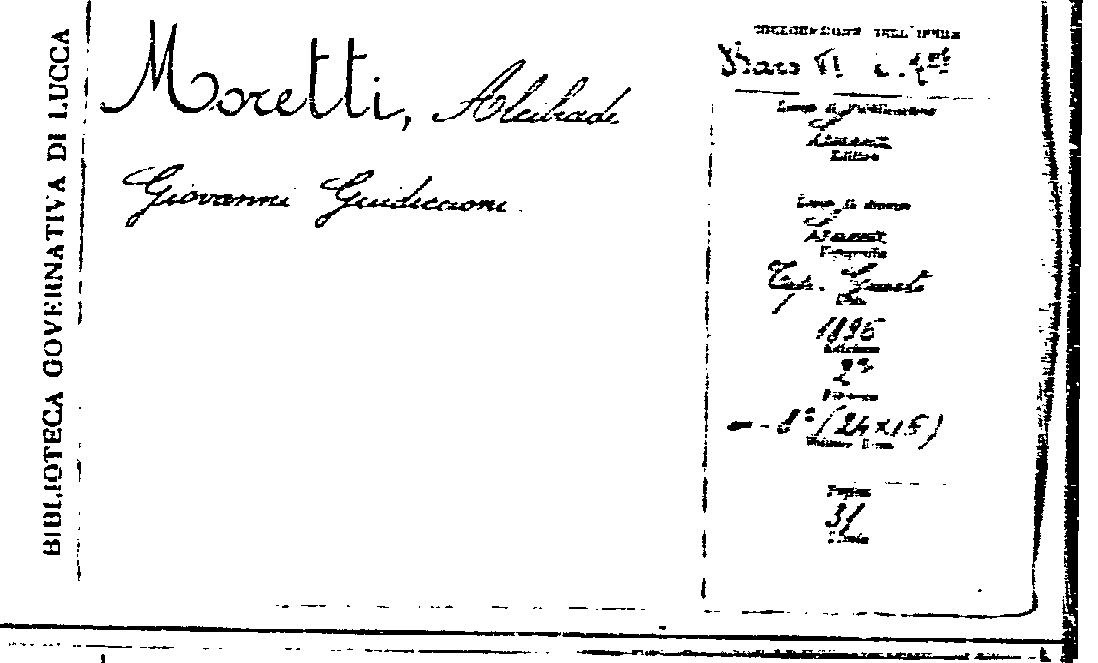 BIBLIOTECA GOVERNATIVA DI LUCCA
Moretti, Alcibiade
Giovanni Guidiccioni
COLLOCAZIONE DELL'OPERA
Luogo di Pubblicazione
Editore
Luogo di stampa
Tipografia
Tip.
Data
1896
Edizione
2ª
Formato
8° (24×15)
Pagine
31